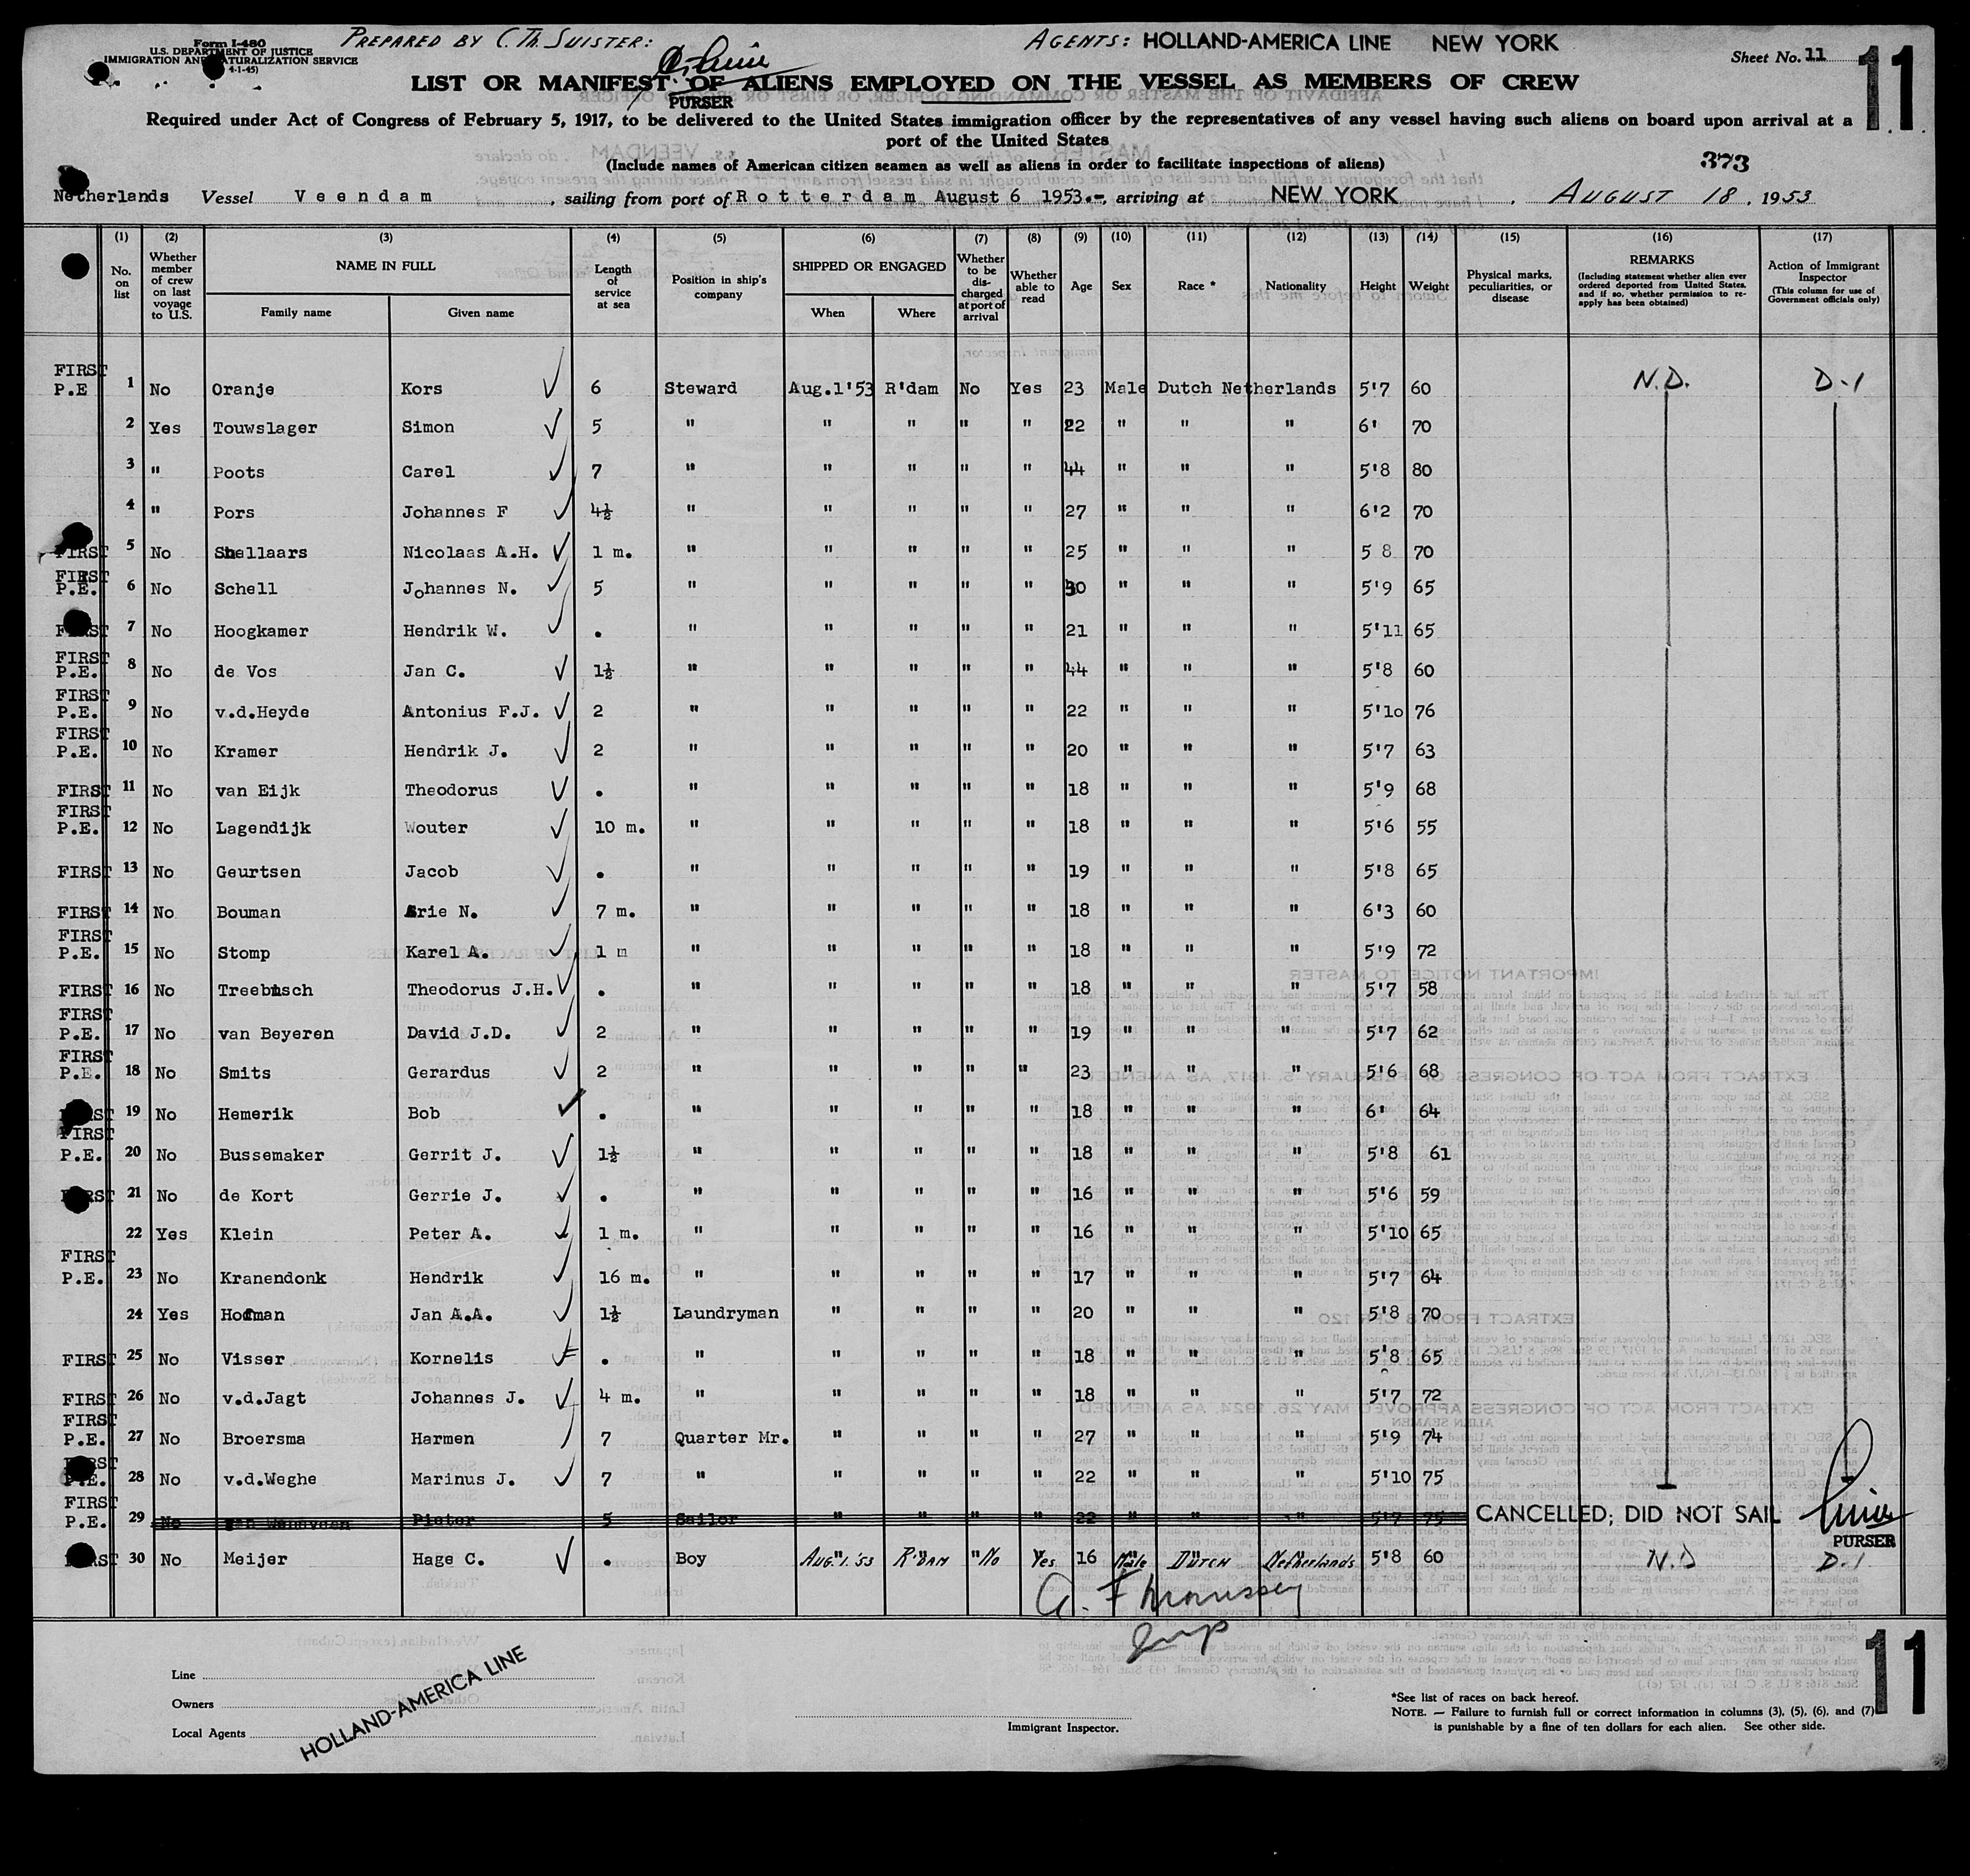 Form I-480
U.S. DEPARTMENT OF JUSTICE
IMMIGRATION AND NATURALIZATION SERVICE
4-1-45)
PREPARED BY C. Th. SUISTER:
PURSER
AGENTS: HOLLAND-AMERICA LINE NEW YORK
Sheet No. 11
11
LIST OR MANIFEST OF ALIENS EMPLOYED ON THE VESSEL AS MEMBERS OF CREW
Required under Act of Congress of February 5, 1917, to be delivered to the United States immigration officer by the representatives of any vessel having such aliens on board upon arrival at a
port of the United States
(Include names of American citizen seamen as well as aliens in order to facilitate inspections of aliens)
373
Netherlands Vessel Veendam, sailing from port of Rotterdam August 6 1953.-, arriving at NEW YORK, AUGUST 18, 1953
(1) No. on list
(2) Whether member of crew on last voyage to U.S.
(3) NAME IN FULL Family name Given name
(4) Length of service at sea
(5) Position in ship's company
(6) SHIPPED OR ENGAGED When Where
(7) Whether to be discharged at port of arrival
(8) Whether able to read
(9) Age
(10) Sex
(11) Race *
(12) Nationality
(13) Height
(14) Weight
(15) Physical marks, peculiarities, or disease
(16) REMARKS (Including statement whether alien ever ordered deported from United States, and if so, whether permission to re-apply has been obtained)
(17) Action of Immigrant Inspector (This column for use of Government officials only)
FIRST P.E 1 No Oranje Kors 6 Steward Aug.1'53 R'dam No Yes 23 Male Dutch Netherlands 5'7 60 N.D. D-1
2 Yes Touwslager Simon 5 " " " " " 22 " " " 6' 70
3 " Poots Carel 7 " " " " " 44 " " " 5'8 80
4 " Pors Johannes F 4½ " " " " " 27 " " " 6'2 70
FIRST 5 No Snellaars Nicolaas A.H. 1 m. " " " " " 25 " " " 5 8 70
FIRST P.E. 6 No Schell Johannes N. 5 " " " " " 30 " " " 5'9 65
FIRST 7 No Hoogkamer Hendrik W. . " " " " " 21 " " " 5'11 65
FIRST P.E. 8 No de Vos Jan C. 1½ " " " " " 44 " " " 5'8 60
FIRST P.E. 9 No v.d.Heyde Antonius F.J. 2 " " " " " 22 " " " 5'10 76
FIRST P.E. 10 No Kramer Hendrik J. 2 " " " " " 20 " " " 5'7 63
FIRST 11 No van Eijk Theodorus . " " " " " 18 " " " 5'9 68
FIRST P.E. 12 No Lagendijk Wouter 10 m. " " " " " 18 " " " 5'6 55
FIRST 13 No Geurtsen Jacob . " " " " " 19 " " " 5'8 65
FIRST 14 No Bouman Arie N. 7 m. " " " " " 18 " " " 6'3 60
FIRST P.E. 15 No Stomp Karel A. 1 m " " " " " 18 " " " 5'9 72
FIRST 16 No Treebusch Theodorus J.H. . " " " " " 18 " " " 5'7 58
FIRST P.E. 17 No van Beyeren David J.D. 2 " " " " " 19 " " " 5'7 62
FIRST P.E. 18 No Smits Gerardus 2 " " " " " 23 " " " 5'6 68
FIRST 19 No Hemerik Bob . " " " " " 18 " " " 6' 64
FIRST P.E. 20 No Bussemaker Gerrit J. 1½ " " " " " 18 " " " 5'8 61
FIRST 21 No de Kort Gerrie J. . " " " " " 16 " " " 5'6 59
22 Yes Klein Peter A. 1 m. " " " " " 16 " " " 5'10 65
FIRST P.E. 23 No Kranendonk Hendrik 16 m. " " " " " 17 " " " 5'7 64
24 Yes Hofman Jan A.A. 1½ Laundryman " " " " 20 " " " 5'8 70
FIRST 25 No Visser Kornelis . " " " " " 18 " " " 5'8 65
FIRST 26 No v.d.Jagt Johannes J. 4 m. " " " " " 18 " " " 5'7 72
FIRST P.E. 27 No Broersma Harmen 7 Quarter Mr. " " " " 27 " " " 5'9 74
FIRST P.E. 28 No v.d.Weghe Marinus J. 7 " " " " " 22 " " " 5'10 75
FIRST P.E. 29 No Pieter 5 Sailor " " " " 22 " " " 5'7 75 CANCELLED; DID NOT SAIL
PURSER
FIRST 30 No Meijer Hage C. . Boy AUG. 1.'53 R'DAM "No Yes 16 Male DUTCH Netherlands 5'8 60 N.D D-1
Line
Owners
Local Agents
HOLLAND-AMERICA LINE
Immigrant Inspector.
*See list of races on back hereof.
NOTE. — Failure to furnish full or correct information in columns (3), (5), (6), and (7)
is punishable by a fine of ten dollars for each alien. See other side.
11